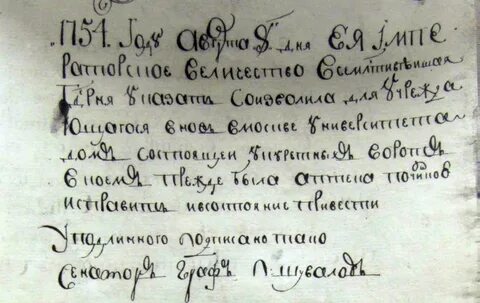 1754. Году Августа 8 дня ЕЯ IМПЕ
раторское величество Всемилостивѣйшая
Г͠дрня указать соизволила для учрежда
ющагося вновь вмоскве университета
домъ состоящеи укуретныхъ воротъ
вкоемъ прежде была аптека починкою
исправить ивсостояние привести
Уподлинного подписано тако
Сенаторъ Графъ П: Шуваловъ